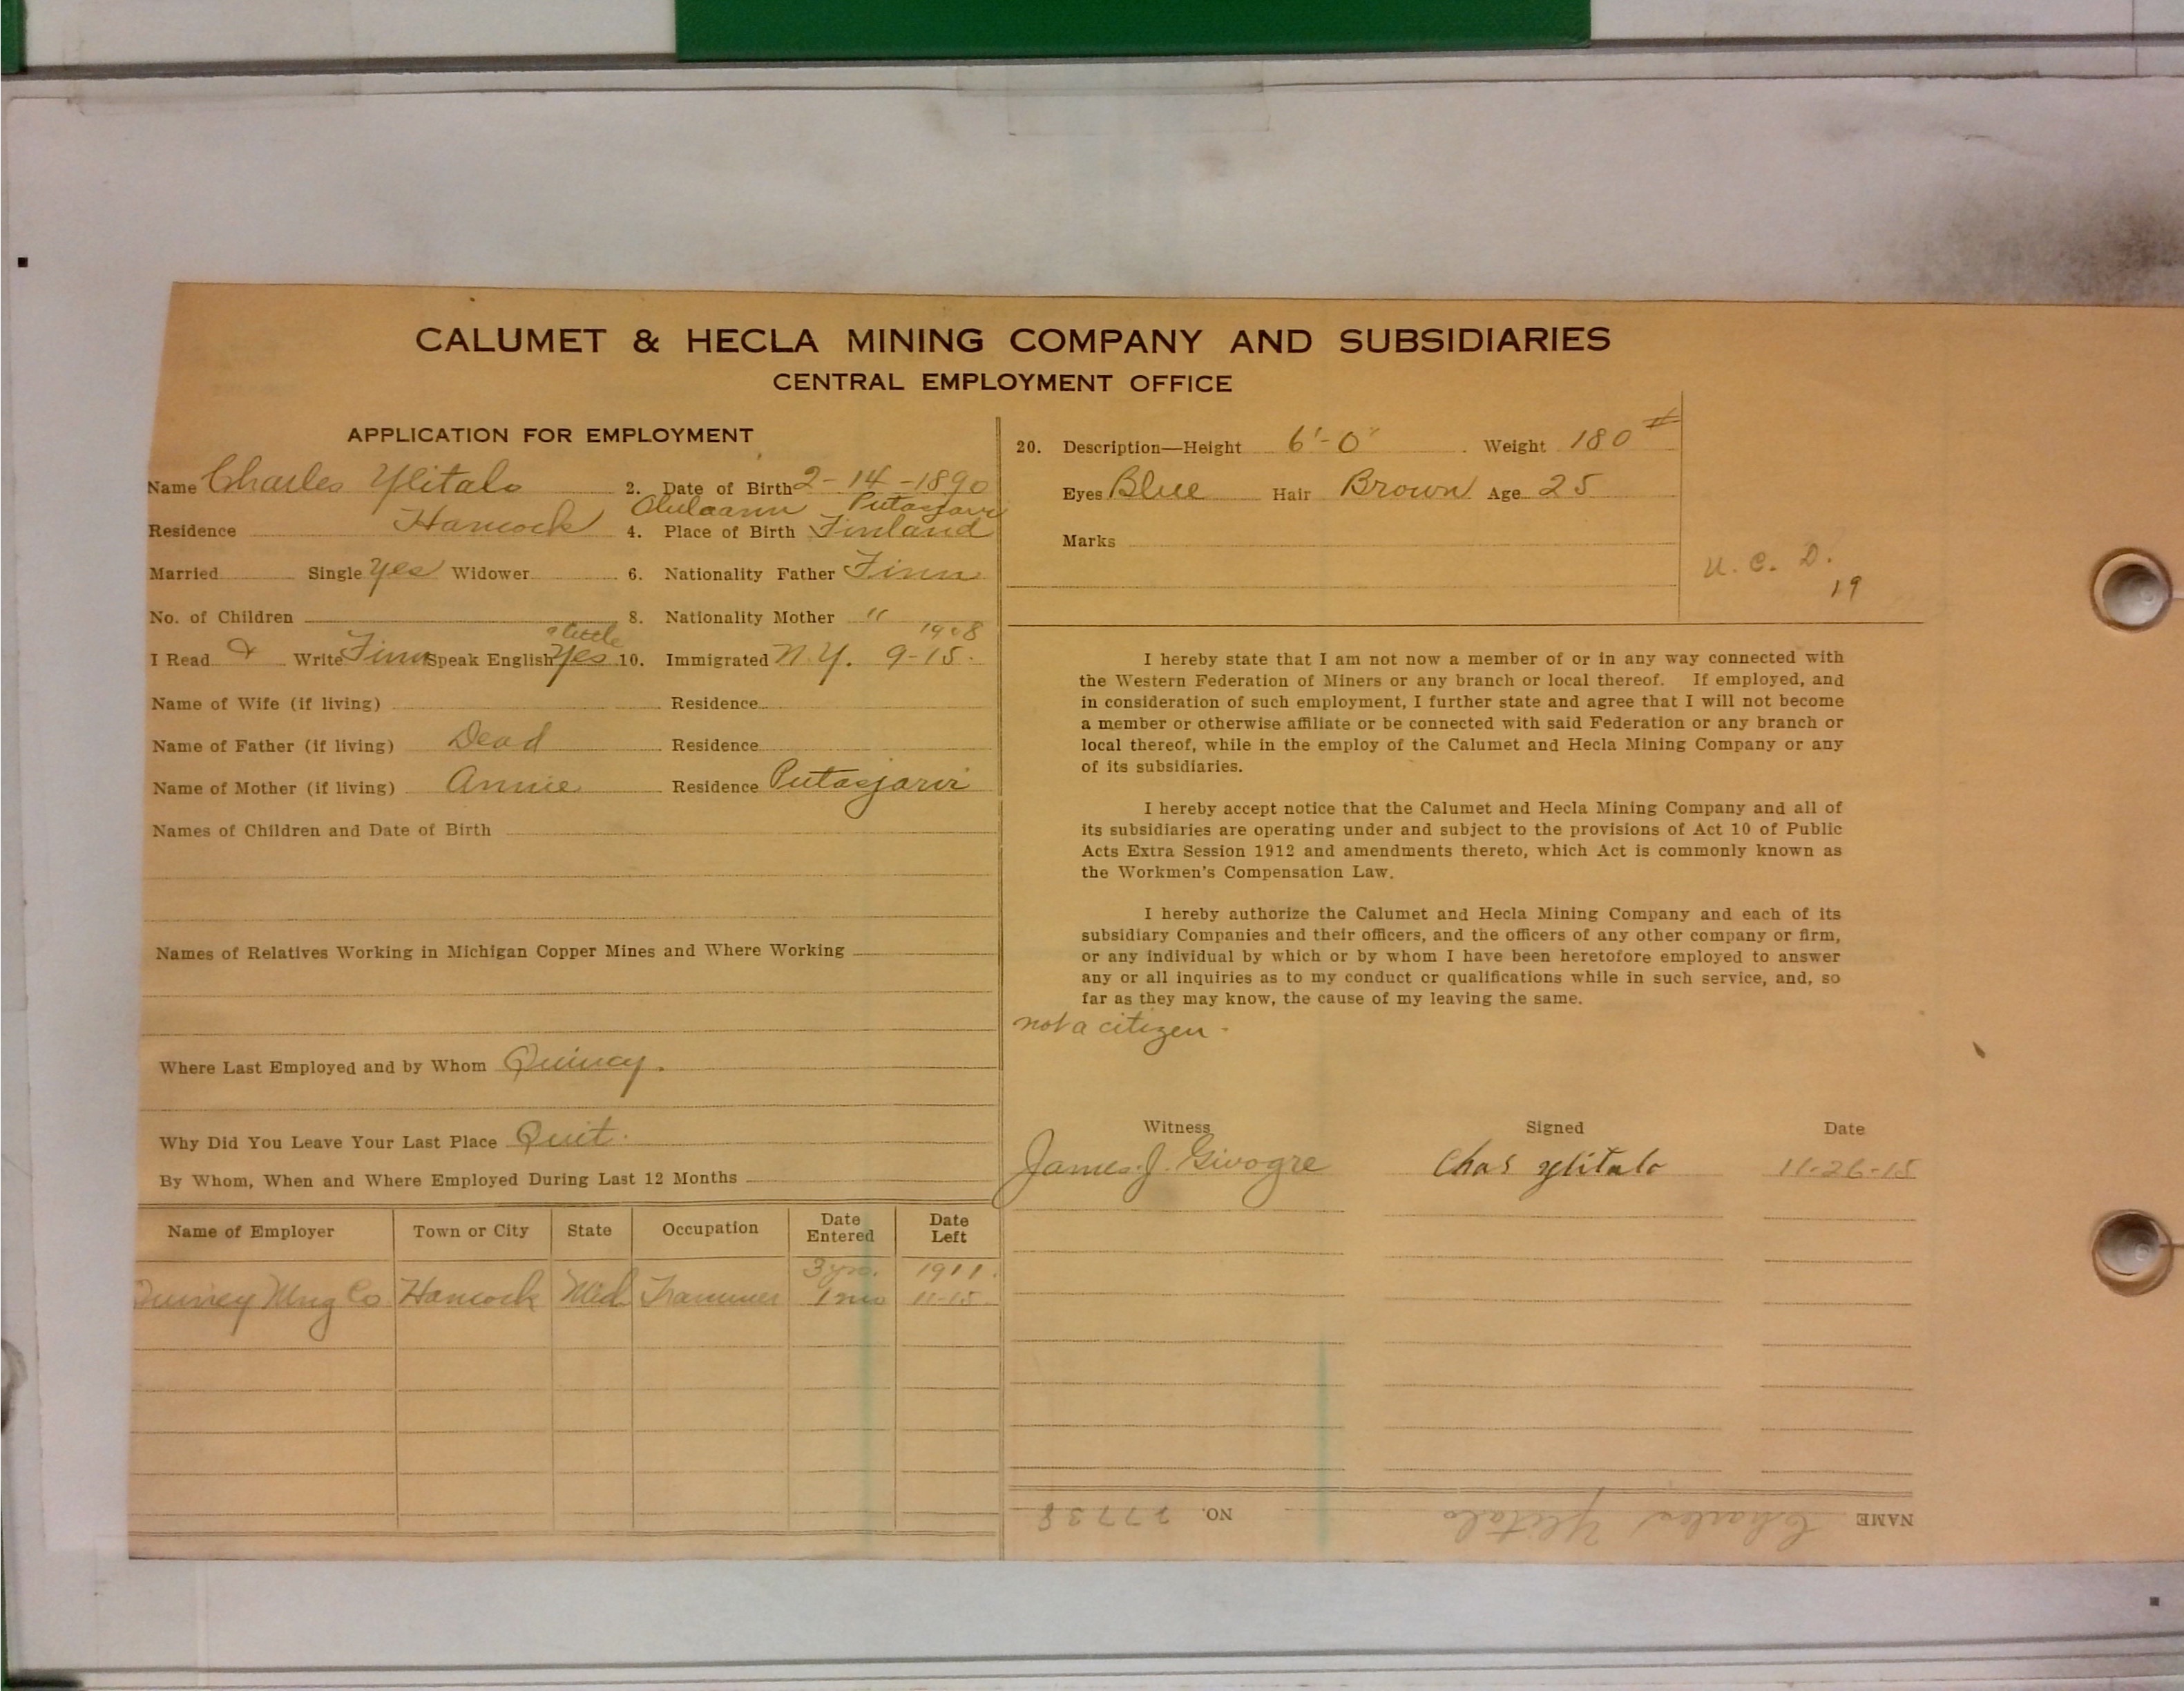 CALUMET & HECLA MINING COMPANY AND SUBSIDIARIES
CENTRAL EMPLOYMENT OFFICE
APPLICATION FOR EMPLOYMENT
Name Charles Ylitalo 2. Date of Birth 2-14-1890
Residence Hancock 4. Place of Birth Oulaann Putasjarvi Finland
Married Single Yes Widower 6. Nationality Father Finn
No. of Children 8. Nationality Mother "
I Read & Write Finn Speak English a little Yes 10. Immigrated N.Y. 9-15- 1908
Name of Wife (if living) Residence
Name of Father (if living) Dead Residence
Name of Mother (if living) Annie Residence Putasjarvi
Names of Children and Date of Birth
Names of Relatives Working in Michigan Copper Mines and Where Working
Where Last Employed and by Whom Quincy.
Why Did You Leave Your Last Place Quit.
By Whom, When and Where Employed During Last 12 Months
Name of Employer Town or City State Occupation Date Entered Date Left
3 yrs. 1911.
Quincy Mng Co Hancock Mich Trammer 1 mo 11-15
20. Description—Height 6'-0" Weight 180 #
Eyes Blue Hair Brown Age 25
Marks
U. C. D.
19
I hereby state that I am not now a member of or in any way connected with
the Western Federation of Miners or any branch or local thereof. If employed, and
in consideration of such employment, I further state and agree that I will not become
a member or otherwise affiliate or be connected with said Federation or any branch or
local thereof, while in the employ of the Calumet and Hecla Mining Company or any
of its subsidiaries.
I hereby accept notice that the Calumet and Hecla Mining Company and all of
its subsidiaries are operating under and subject to the provisions of Act 10 of Public
Acts Extra Session 1912 and amendments thereto, which Act is commonly known as
the Workmen's Compensation Law.
I hereby authorize the Calumet and Hecla Mining Company and each of its
subsidiary Companies and their officers, and the officers of any other company or firm,
or any individual by which or by whom I have been heretofore employed to answer
any or all inquiries as to my conduct or qualifications while in such service, and, so
far as they may know, the cause of my leaving the same.
not a citizen -
Witness Signed Date
James J. Givogre Chas Ylitalo 11-26-15
NAME Charles Ylitalo NO. 27738